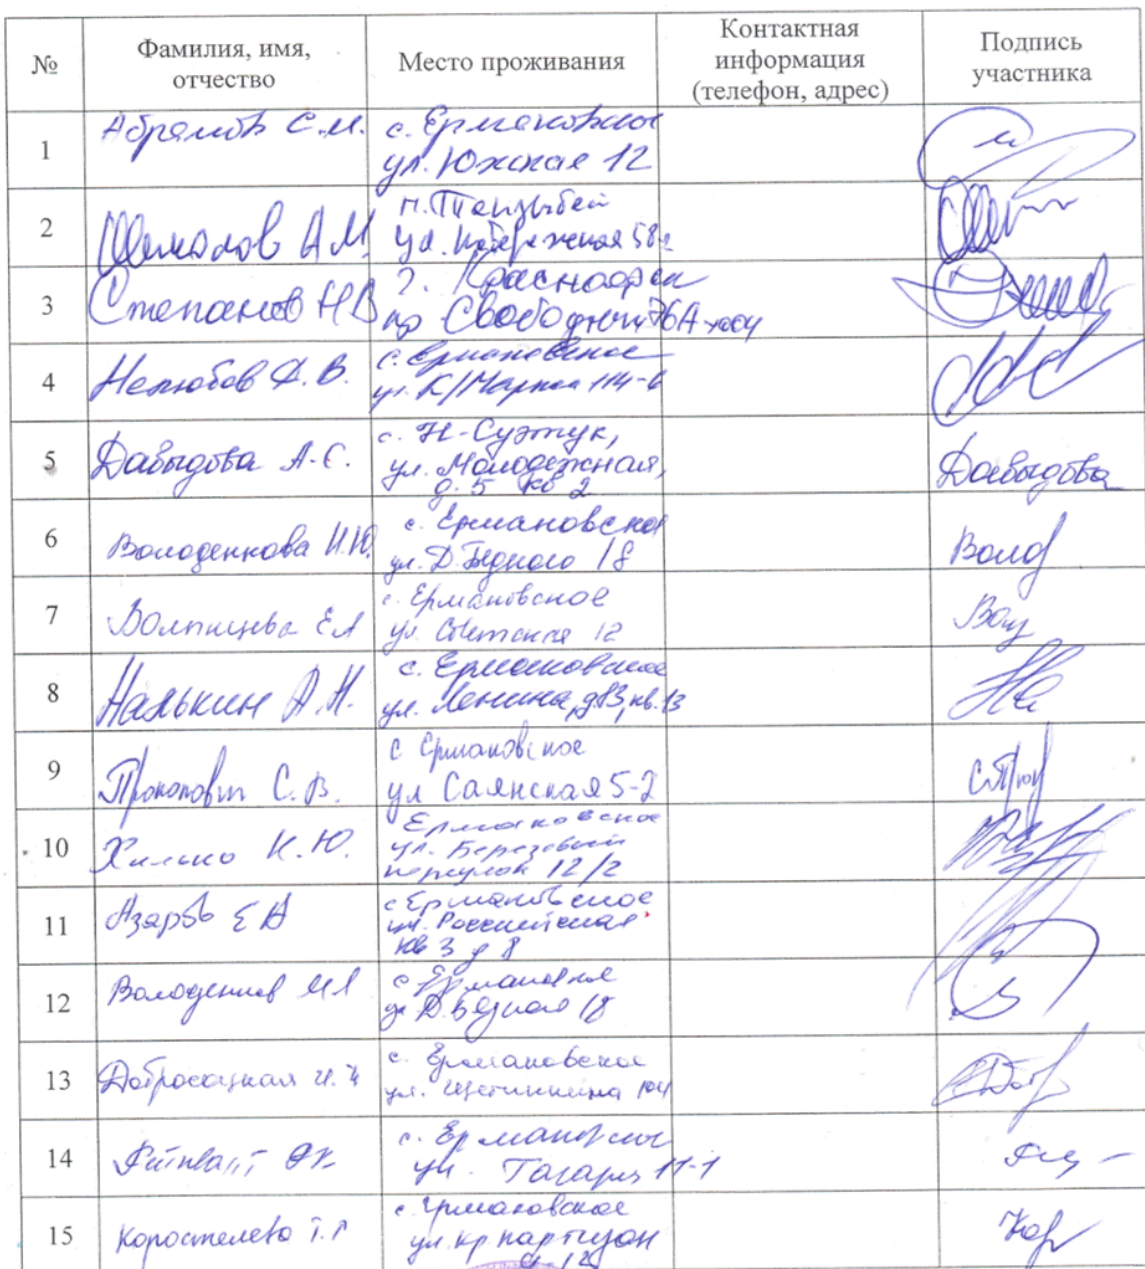 №
Фамилия, имя,
отчество
Место проживания
Контактная
информация
(телефон, адрес)
Подпись
участника
1
Абрамов С.М.
с. Ермаковское
ул. Южная 12
2
Шималов А.М.
п. Танзыбей
ул. Набережная 58
3
Степанов Н В
г. Красноярск
пр Свободный 76А
4
Нелюбов Д. В.
с. Ермаковское
ул. К/Маркса 114-6
5
Давыдова А.С.
с. Н-Суэтук,
ул. Молодежная,
д. 5 кв 2
Давыдова
6
Володенкова И.Ю.
с. Ермаковское
ул. Д. Бедного 18
Волод
7
с. Ермаковское
ул. Советская 12
8
Налькин А.Н.
с. Ермаковское
ул. Ленина, д83, кв. 13
9
Прокопович С.В.
с Ермаковское
ул Саянская 5-2
10
Хилько К.Ю.
Ермаковское
ул. Березовый
переулок 12/2
11
Азаров Е А
с Ермаковское
ул. Российская
кв 3 д 8
12
Володенков
с Ермаковское
ул Д. Бедного 18
13
Добросоцкая И.
с. Ермаковское
ул. Щетинкина
14
с. Ермаковское
ул. 11-1
15
Коростелева Т.
с. Ермаковское
ул. кр партизан
Кор